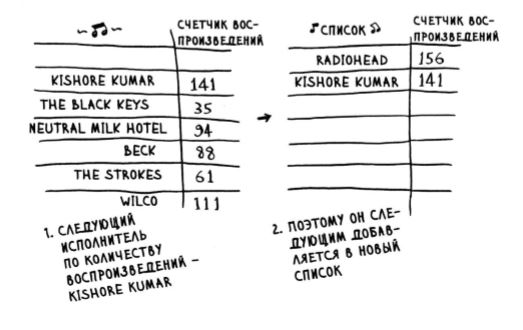 ~♫~ СЧЕТЧИК ВОС-
ПРОИЗВЕДЕНИЙ
KISHORE KUMAR 141
THE BLACK KEYS 35
NEUTRAL MILK HOTEL 94
BECK 88
THE STROKES 61
WILCO 111
1. СЛЕДУЮЩИЙ
ИСПОЛНИТЕЛЬ
ПО КОЛИЧЕСТВУ
ВОСПРОИЗВЕДЕНИЙ –
KISHORE KUMAR
→
♪СПИСОК♫ СЧЕТЧИК ВОС-
ПРОИЗВЕДЕНИЙ
RADIOHEAD 156
KISHORE KUMAR 141
2. ПОЭТОМУ ОН СЛЕ-
ДУЮЩИМ ДОБАВ-
ЛЯЕТСЯ В НОВЫЙ
СПИСОК